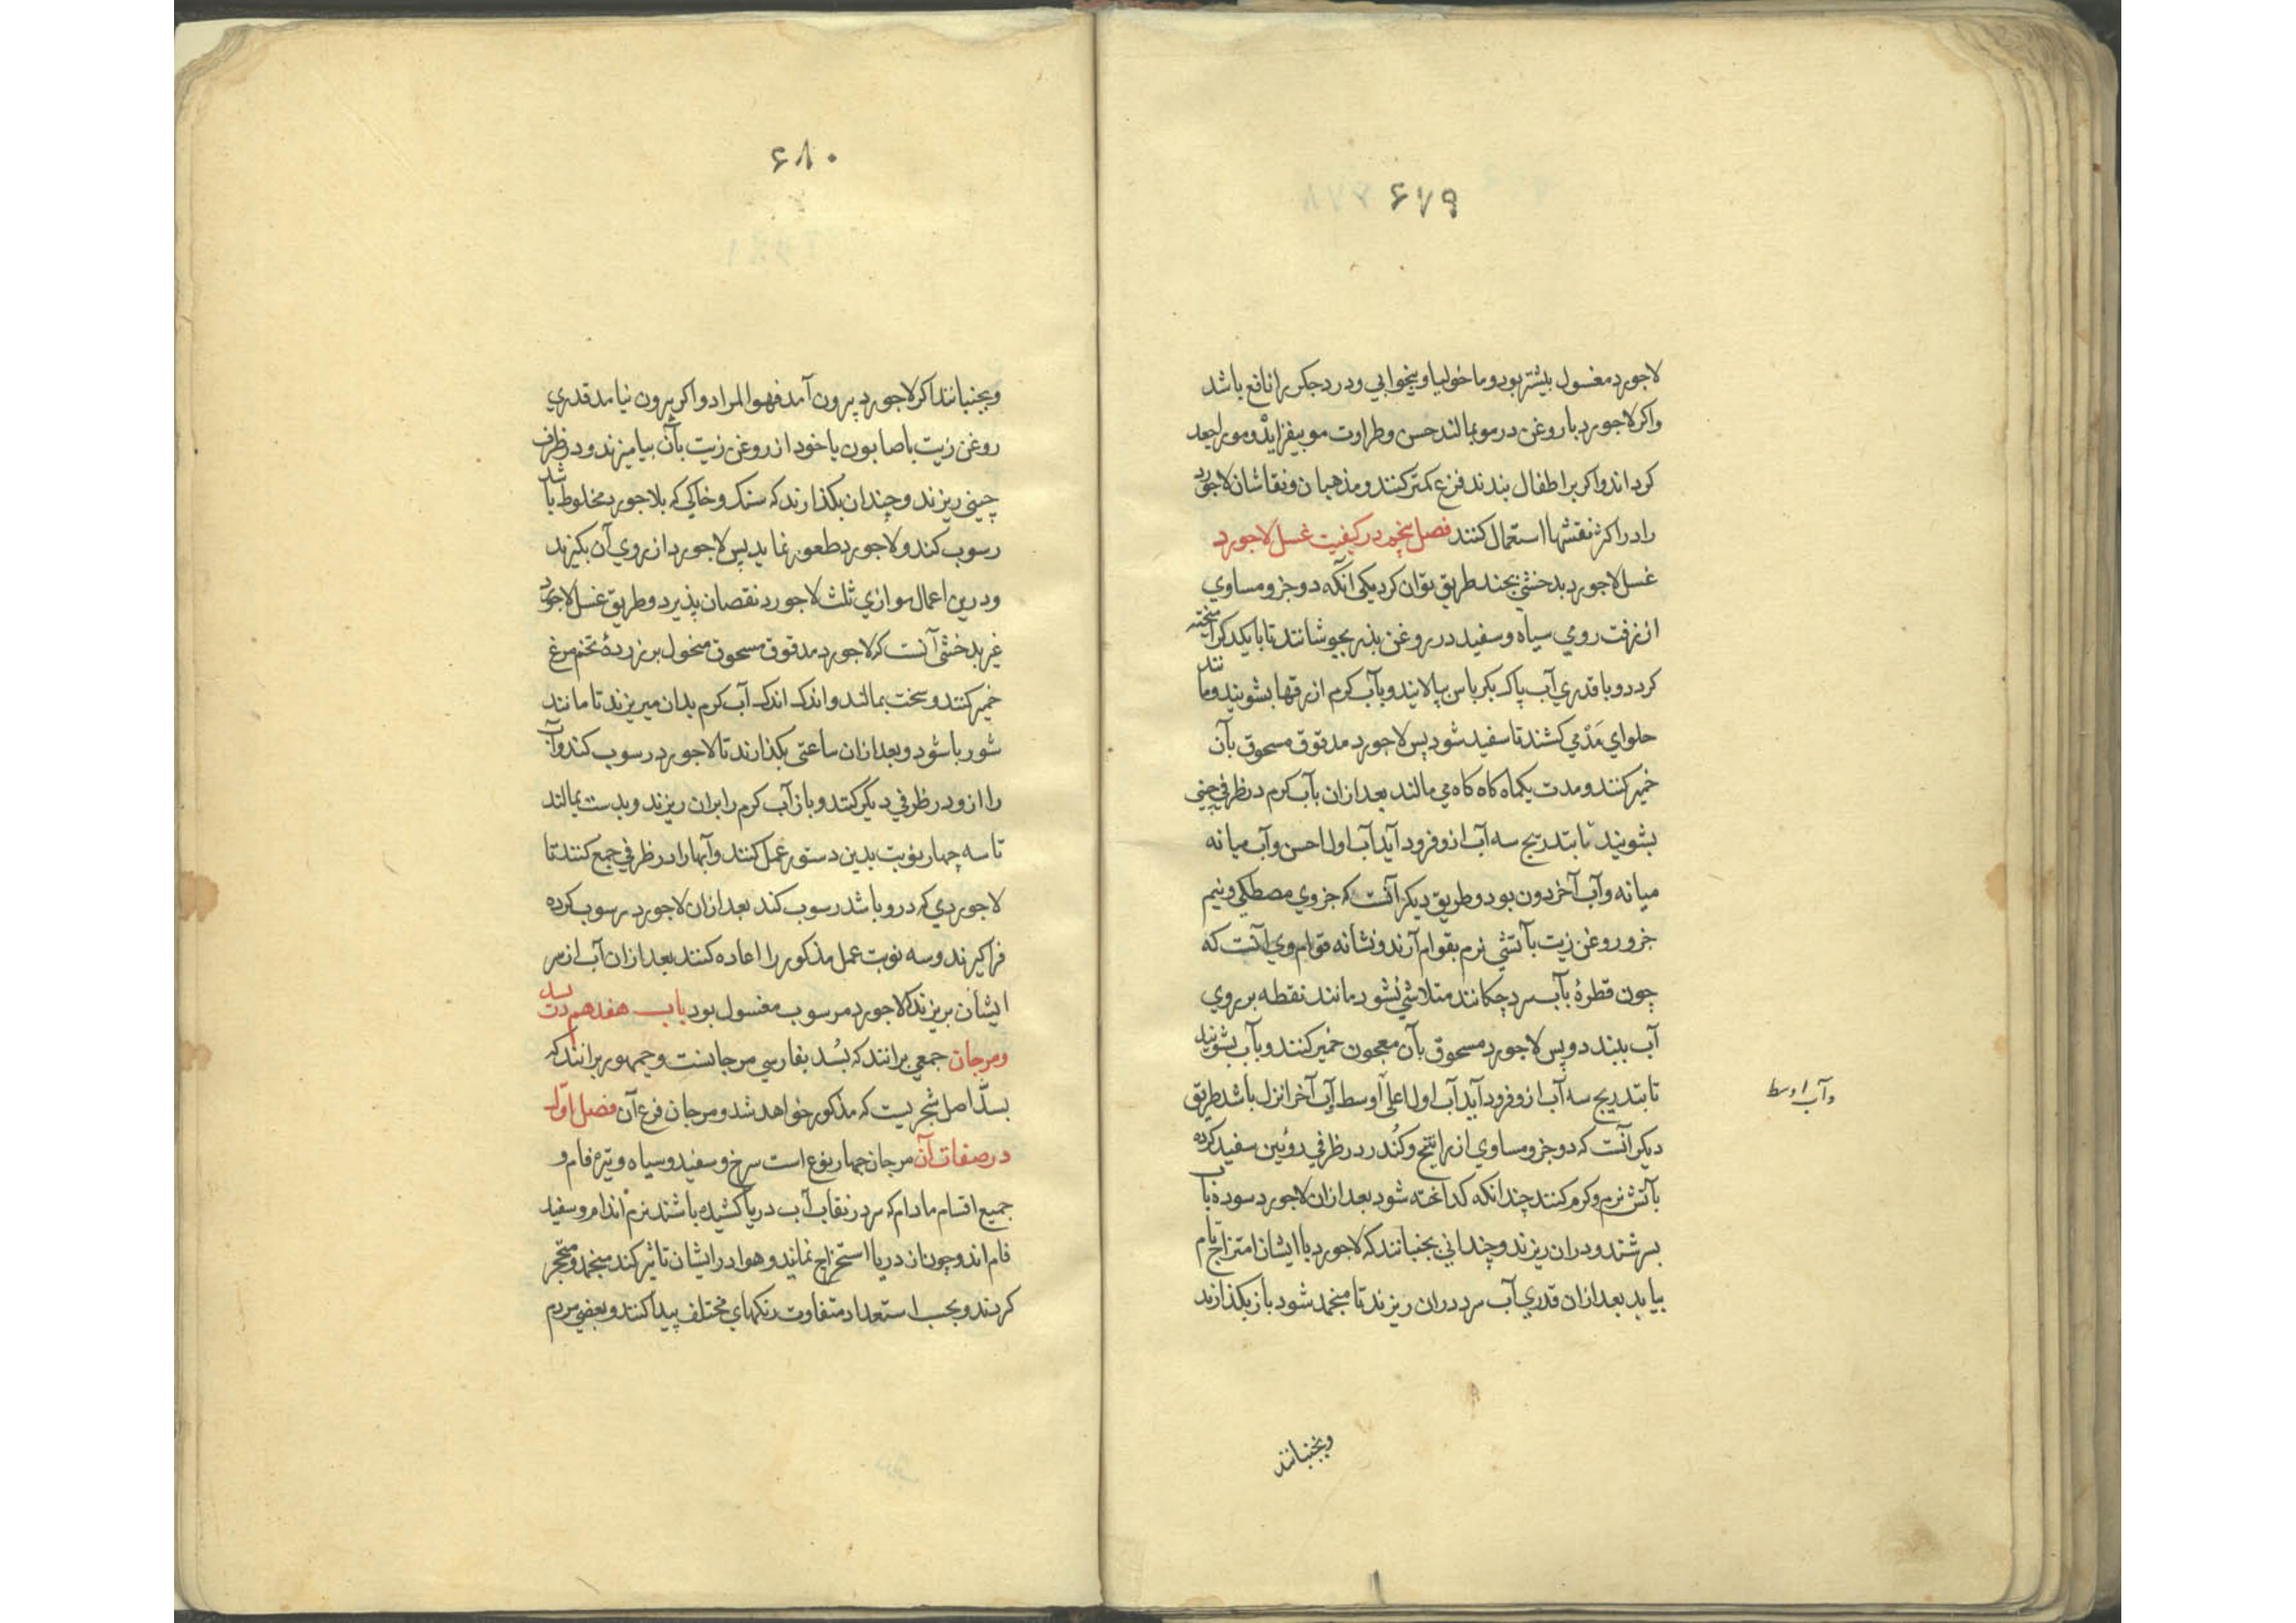 ۶۷۹
لاجورد مغسول بیشتر بود و ماخولیا و بیخوابی و درد جکر را نافع باشد
واکر لاجورد با روغن در مو بمالند حسن و طراوت مو بیفزاید و مو را جعد
کرداند واکر بر اطفال بندند فزع کمتر کنند و مذهبان و نقاشان لاجورد
را در اکثر نقشها استعمال کنند فصل پنجم در کیفیت غسل لاجورد
غسل لاجورد بدخشی بچند طریق توان کرد یکی آنکه دو جزو مساوی
از زفت رومی سیاه و سفید در روغن بذر بجوشانند تا با یکدکر آمیخته
کردد و با قدری آب پاک بکرباس بپالایند و بآب کرم از رقها بشویند و مانند
حلوای مَدّ می کشند تا سفید شود پس لاجورد مدقوق مسحوق بآن
خمیر کنند و مدت یکماه کاه کاه می مالند بعد از ان بآب کرم در ظرفی چینی
بشویند تا بتدریج سه آب ازو فرود آید آب اول احسن و آب میانه
میانه و آب آخر دون بود و طریق دیکر آنست که جزوی مصطکی و نیم
جزو روغن زیت بآتشی نرم بقوام آرند و نشانه قوام وی آنست که
چون قطرهٔ بآب سرد چکانند متلاشی نشود مانند نقطه بر روی
آب ببندد و پس لاجورد مسحوق بآن معجون خمیر کنند و بآب بشویند
تا بتدریج سه آب ازو فرود آید آب اول اعلی اوسط آب آخر انزل باشد طریق
وآب اوسط
دیکر آنست که دو جزو مساوی از راتینج و کُندر در ظرفی روئین سفید کرده
بآتش نرم و کرم کنند چندانکه کداخته شود بعد از ان لاجورد سوده بآب
بسرشند و در ان ریزند و چندانی بجنبانند که لاجورد با ایشان امتزاج تام
بیابد بعد از ان قدری آب سرد در ان ریزند تا منجمد شود باز بکذارند
وبجنبانند
۶۸۰
وبجنبانند اکر لاجورد بیرون آمد فهو المراد و اکر بیرون نیامد قدری
روغن زیت با صابون یا خود از روغن زیت بآن بیامیزند و در ظرف
چینی ریزند و چندان بکذارند که سنک و خاکی که بلاجورد مخلوط باشد
رسوب کند و لاجورد طعور نماید پس لاجورد از روی آن بکیرند
و درین اعمال موازی ثلث لاجورد نقصان پذیرد و طریق غسل لاجورد
غیر بدخشی آنست که لاجورد مدقوق مسحوق منخول بر زردهٔ تخم مرغ
خمیر کنند و سخت بمالند و اندک اندک آب کرم بدان میریزند تا مانند
شوربا شود و بعد از ان ساعتی بکذارند تا لاجورد رسوب کند و آب
را ازو در ظرفی دیکر کنند و باز آب کرم را بران ریزند و بدست بمالند
تا سه چهار نوبت بدین دستور عمل کنند و آبها را در ظرفی جمع کنند تا
لاجوردی که درو باشد رسوب کند بعد از ان لاجورد رسوب کرده
فرا کیرند و سه نوبت عمل مذکور را اعاده کنند بعد از ان آب از سر
ایشان بریزند که لاجورد مرسوب مغسول بود باب هفدهم در بسد
ومرجان جمعی برانند که بُسد بفارسی مرجانست و جمهور برانند که
بسدّ اصل شجریست که مذکور خواهد شد و مرجان فرع آن فصل اوّل
در صفات آن مرجان چهار نوع است سرخ و سفید و سیاه و تیره فام و
جمیع اقسام مادام که سر در نقاب آب دریا کشیده باشند نرم اندام و سفید
فام اند و چون از دریا استخراج نمایند و هوا در ایشان تاثیر کند منجمد و متحجر
کردند و بحسب استعداد متفاوت رنکهای مختلف پیدا کنند و بعضی مردم